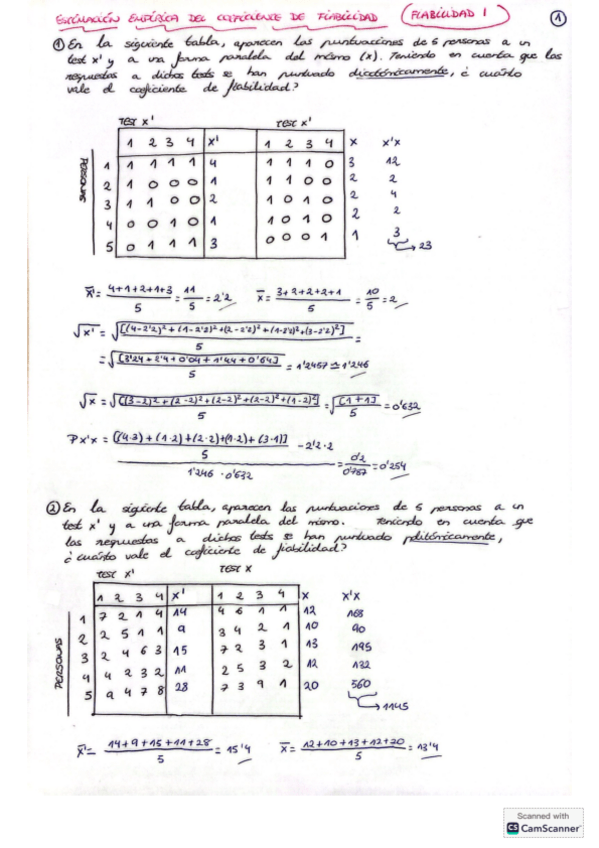 ESTIMACIÓN EMPÍRICA DEL COEFICIENTE DE FIABILIDAD (FIABILIDAD 1) 1
① En la siguiente tabla, aparecen las puntuaciones de 5 personas a un
test x' y a una forma paralela del mismo (x). Teniendo en cuenta que las
respuestas a dichos tests se han puntuado dicotómicamente, ¿ cuánto
vale el coeficiente de fiabilidad?
TEST X' TEST X'
1 2 3 4 X' 1 2 3 4 X X'X
PERSONAS
1 1 1 1 1 4 1 1 1 0 3 12
2 1 0 0 0 1 1 1 0 0 2 2
3 1 1 0 0 2 1 0 1 0 2 4
4 0 0 1 0 1 1 0 1 0 2 2
5 0 1 1 1 3 0 0 0 1 1 3
→ 23
X̄' = 4+1+2+1+3 / 5 = 11 / 5 = 2'2 X̄ = 3+2+2+2+1 / 5 = 10 / 5 = 2
√x' = √[(4-2'2)² + (1-2'2)² + (2-2'2)² + (1-2'2)² + (3-2'2)²] / 5 =
= √[3'24 + 2'4 + 0'04 + 1'44 + 0'64] / 5 = 1'2457 ≃ 1'246
√x = √[(3-2)² + (2-2)² + (2-2)² + (2-2)² + (1-2)²] / 5 = √[1+1] / 5 = 0'632
Px'x = [(4·3) + (1·2) + (2·2) + (1·2) + (3·1)] / 5 - 2'2·2 / 1'246 · 0'632 = 0'2 / 0'787 = 0'254
② En la siguiente tabla, aparecen las puntuaciones de 5 personas a un
test x' y a una forma paralela del mismo. Teniendo en cuenta que
las respuestas a dichos tests se han puntuado politómicamente,
¿ cuánto vale el coeficiente de fiabilidad?
TEST X' TEST X
1 2 3 4 X' 1 2 3 4 X X'X
PERSONAS
1 7 2 1 4 14 4 6 1 1 12 168
2 2 5 1 1 9 3 4 2 1 10 90
3 2 4 6 3 15 7 2 3 1 13 195
4 4 2 3 2 11 2 5 3 2 12 132
5 9 4 7 8 28 7 3 9 1 20 560
→ 1145
X̄' = 14+9+15+11+28 / 5 = 15'4 X̄ = 12+10+13+12+20 / 5 = 13'4
Scanned with
CS CamScanner